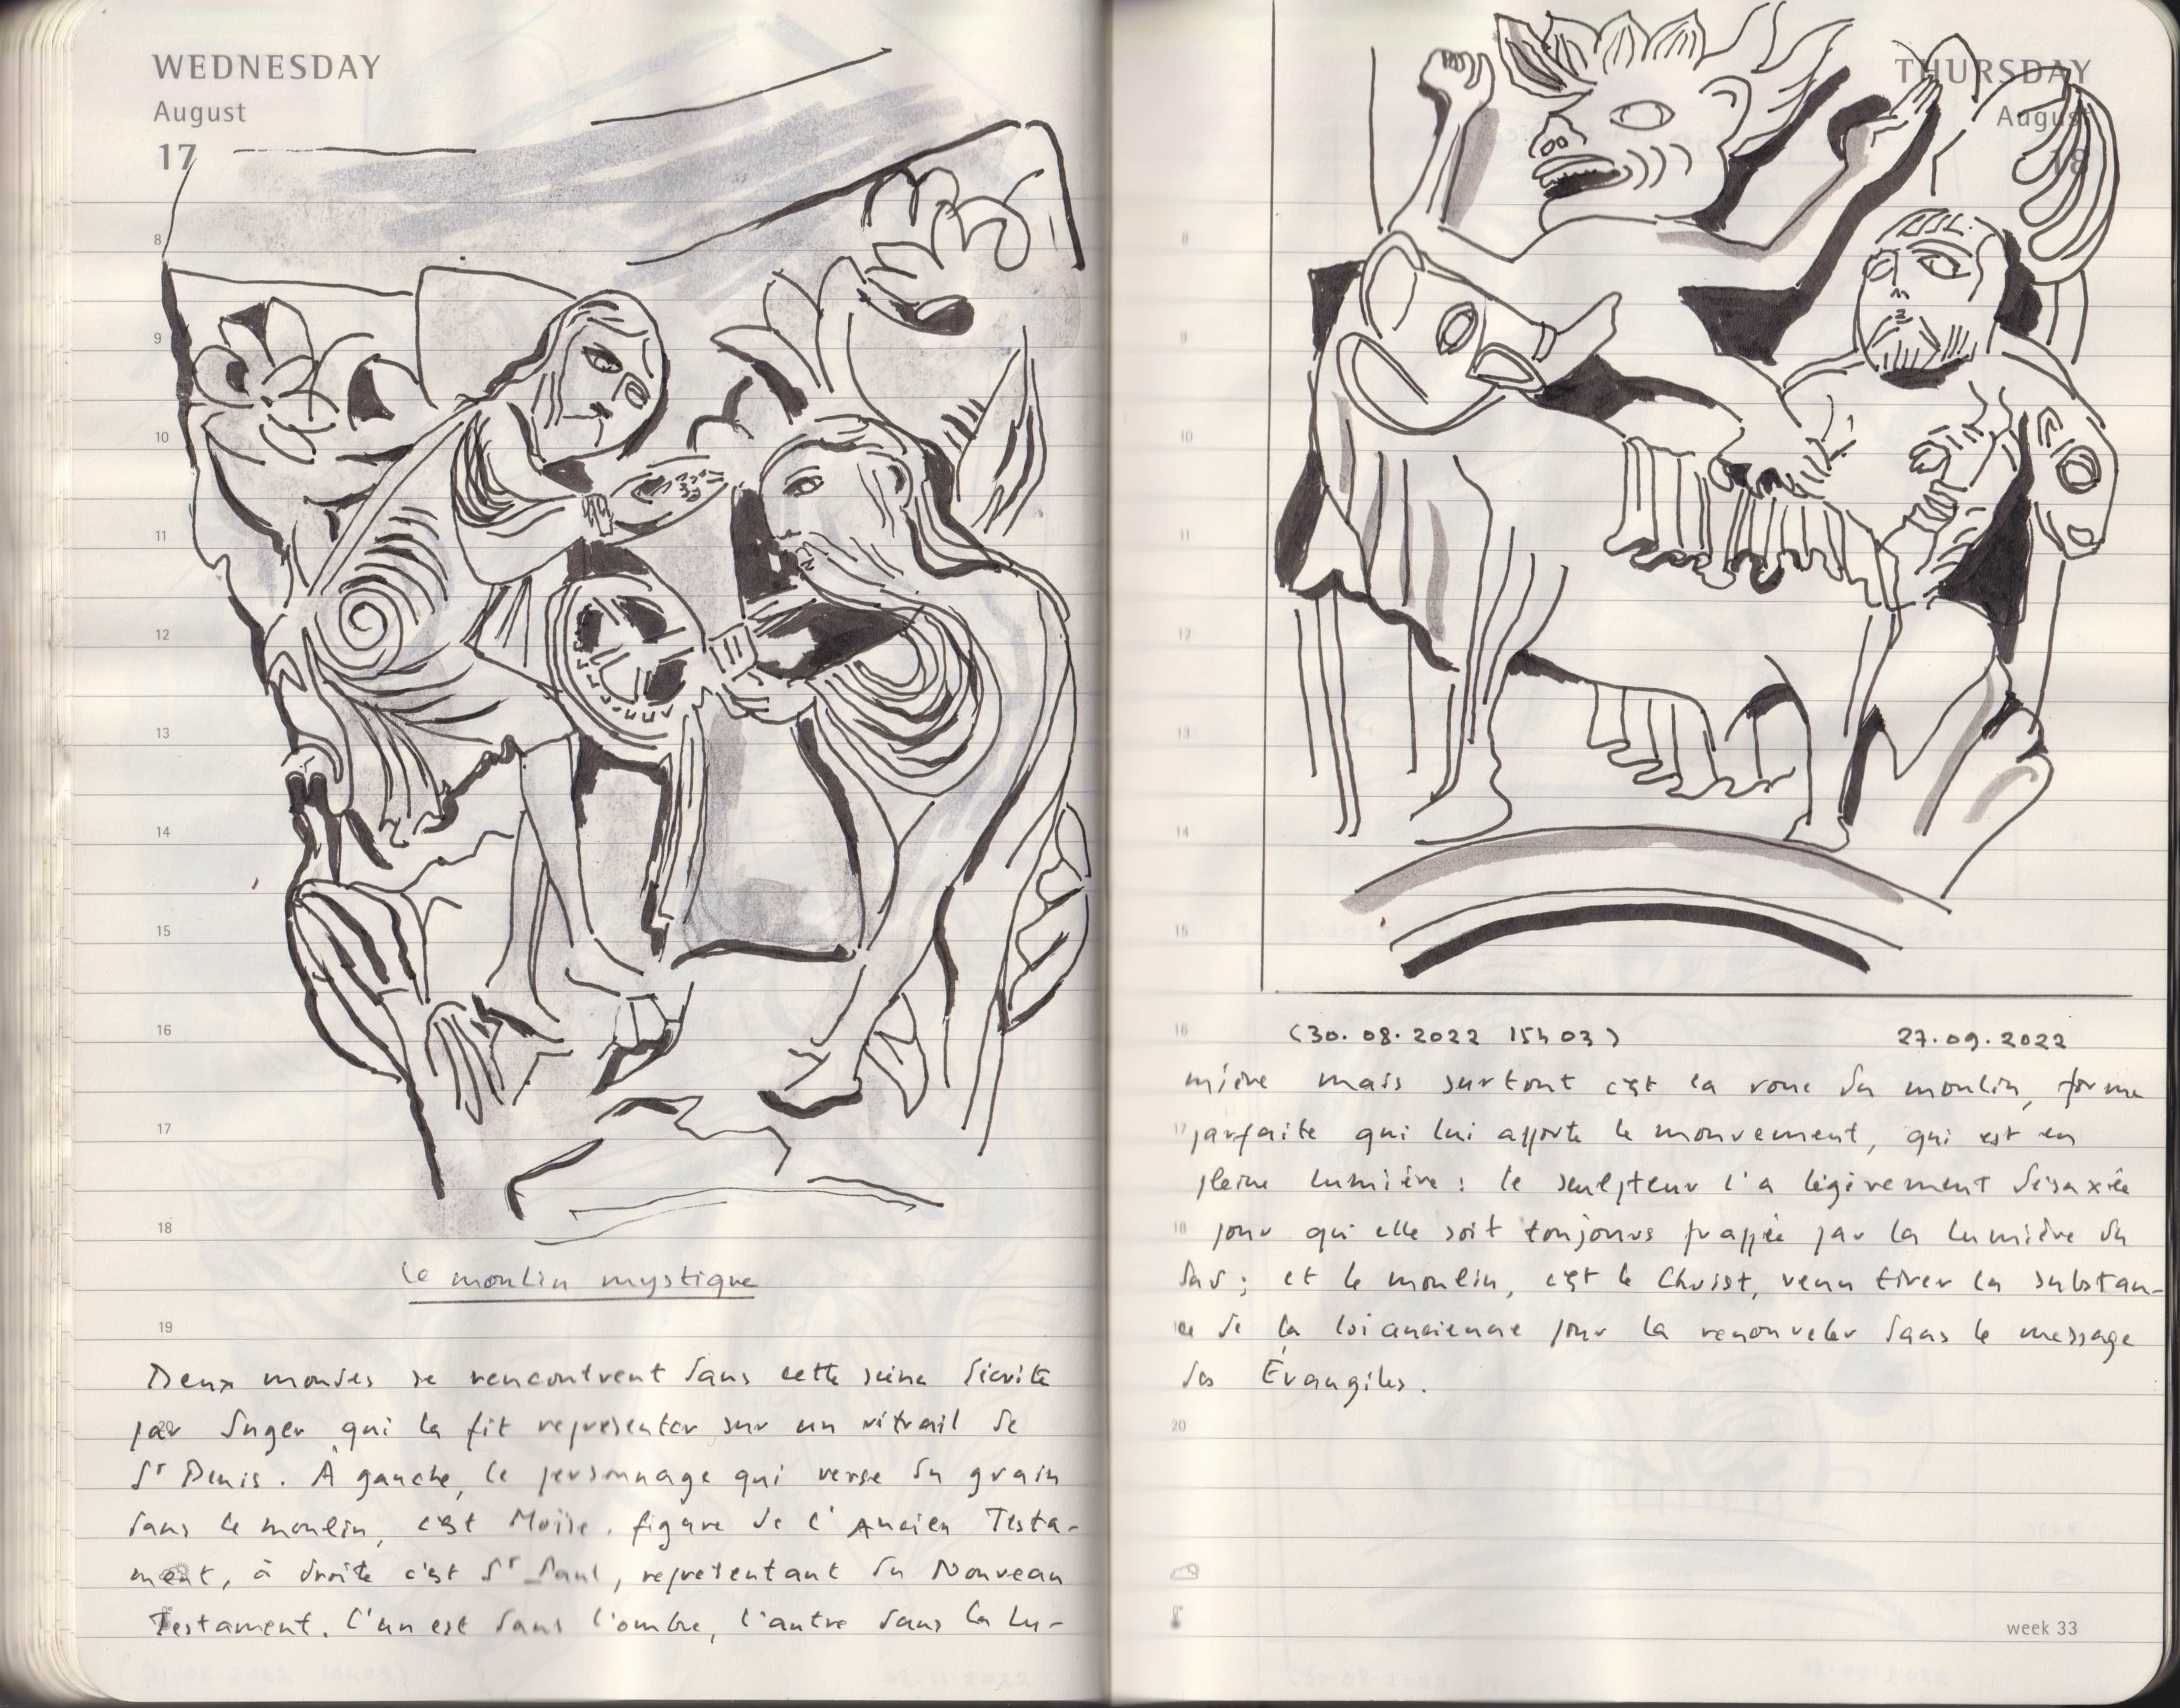 WEDNESDAY
August
17
8
9
10
11
12
13
14
15
16
17
18
le moulin mystique
19
Deux mondes se rencontrent dans cette scène décrite
20
par Suger qui la fit représenter sur un vitrail de
St Denis. À gauche, le personnage qui verse du grain
dans le moulin, c'est Moïse, figure de l'Ancien Testa-
ment, à droite c'est St Paul, représentant du Nouveau
Testament. L'un est dans l'ombre, l'autre dans la lu-
THURSDAY
August
18
8
9
10
11
12
13
14
15
16
(30.08.2022 15h03) 27.09.2022
mière mais surtout c'est la roue du moulin, forme
17
parfaite qui lui apporte le mouvement, qui est en
pleine lumière : le sculpteur l'a légèrement désaxée
18
pour qu'elle soit toujours frappée par la lumière du
sud ; et le moulin, c'est le Christ, venu tirer la substan-
19
ce de la loi ancienne pour la renouveler dans le message
des Évangiles.
20
week 33